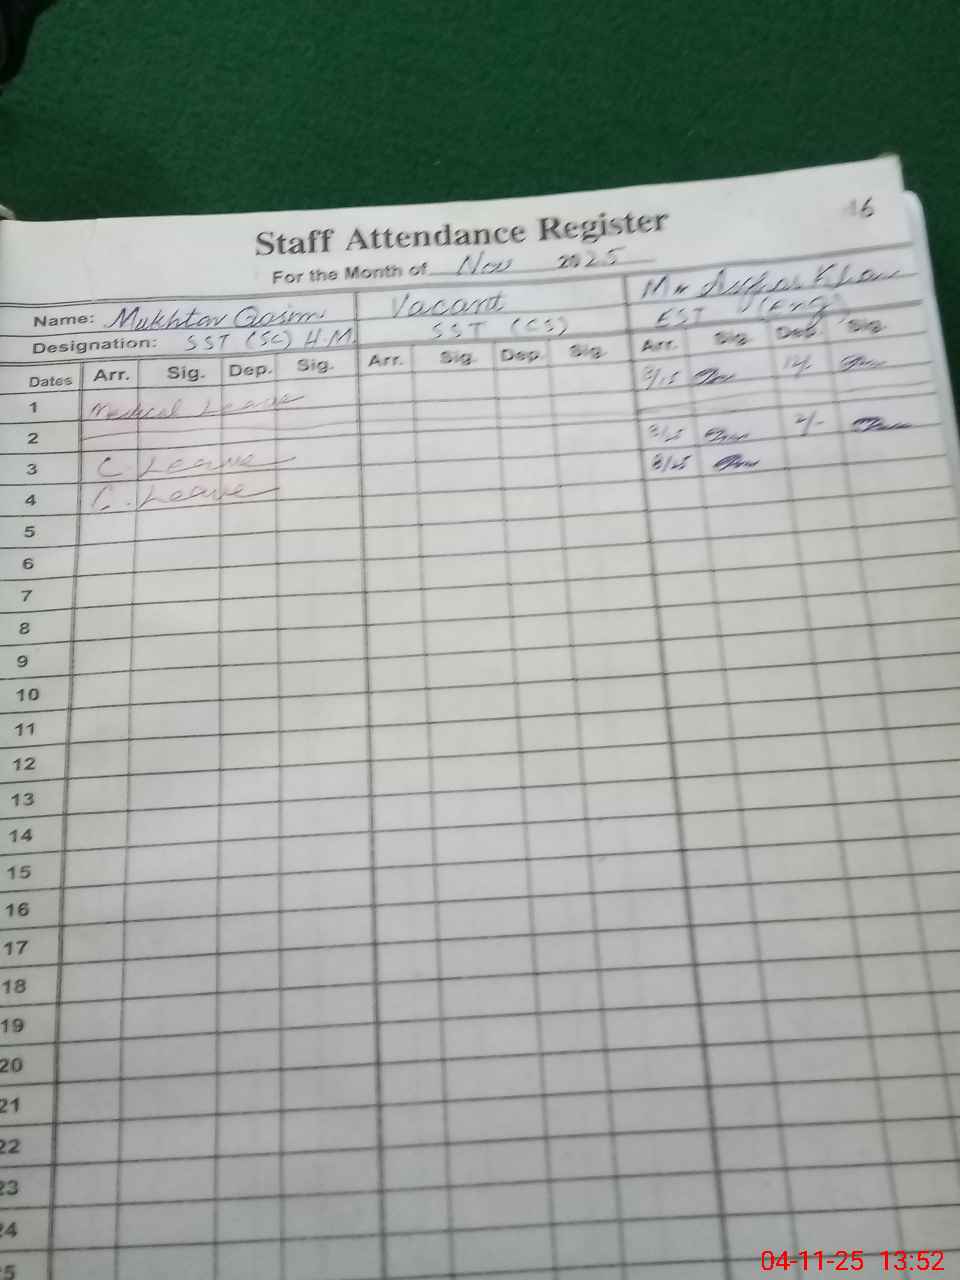 16
Staff Attendance Register
For the Month of Nov 2025
Name: Mukhtar Qasim Vacant Mr Khan
Designation: SST (SC) H.M. SST (CS) EST (Eng)
Dates Arr. Sig. Dep. Sig. Arr. Sig. Dep. Sig. Arr. Sig. Dep. Sig.
1 Medical Leave 8/15
2
3 C. Leave 8/25 2/-
4 C. Leave 8/25
5
6
7
8
9
10
11
12
13
14
15
16
17
18
19
20
21
22
23
24
04-11-25 13:52